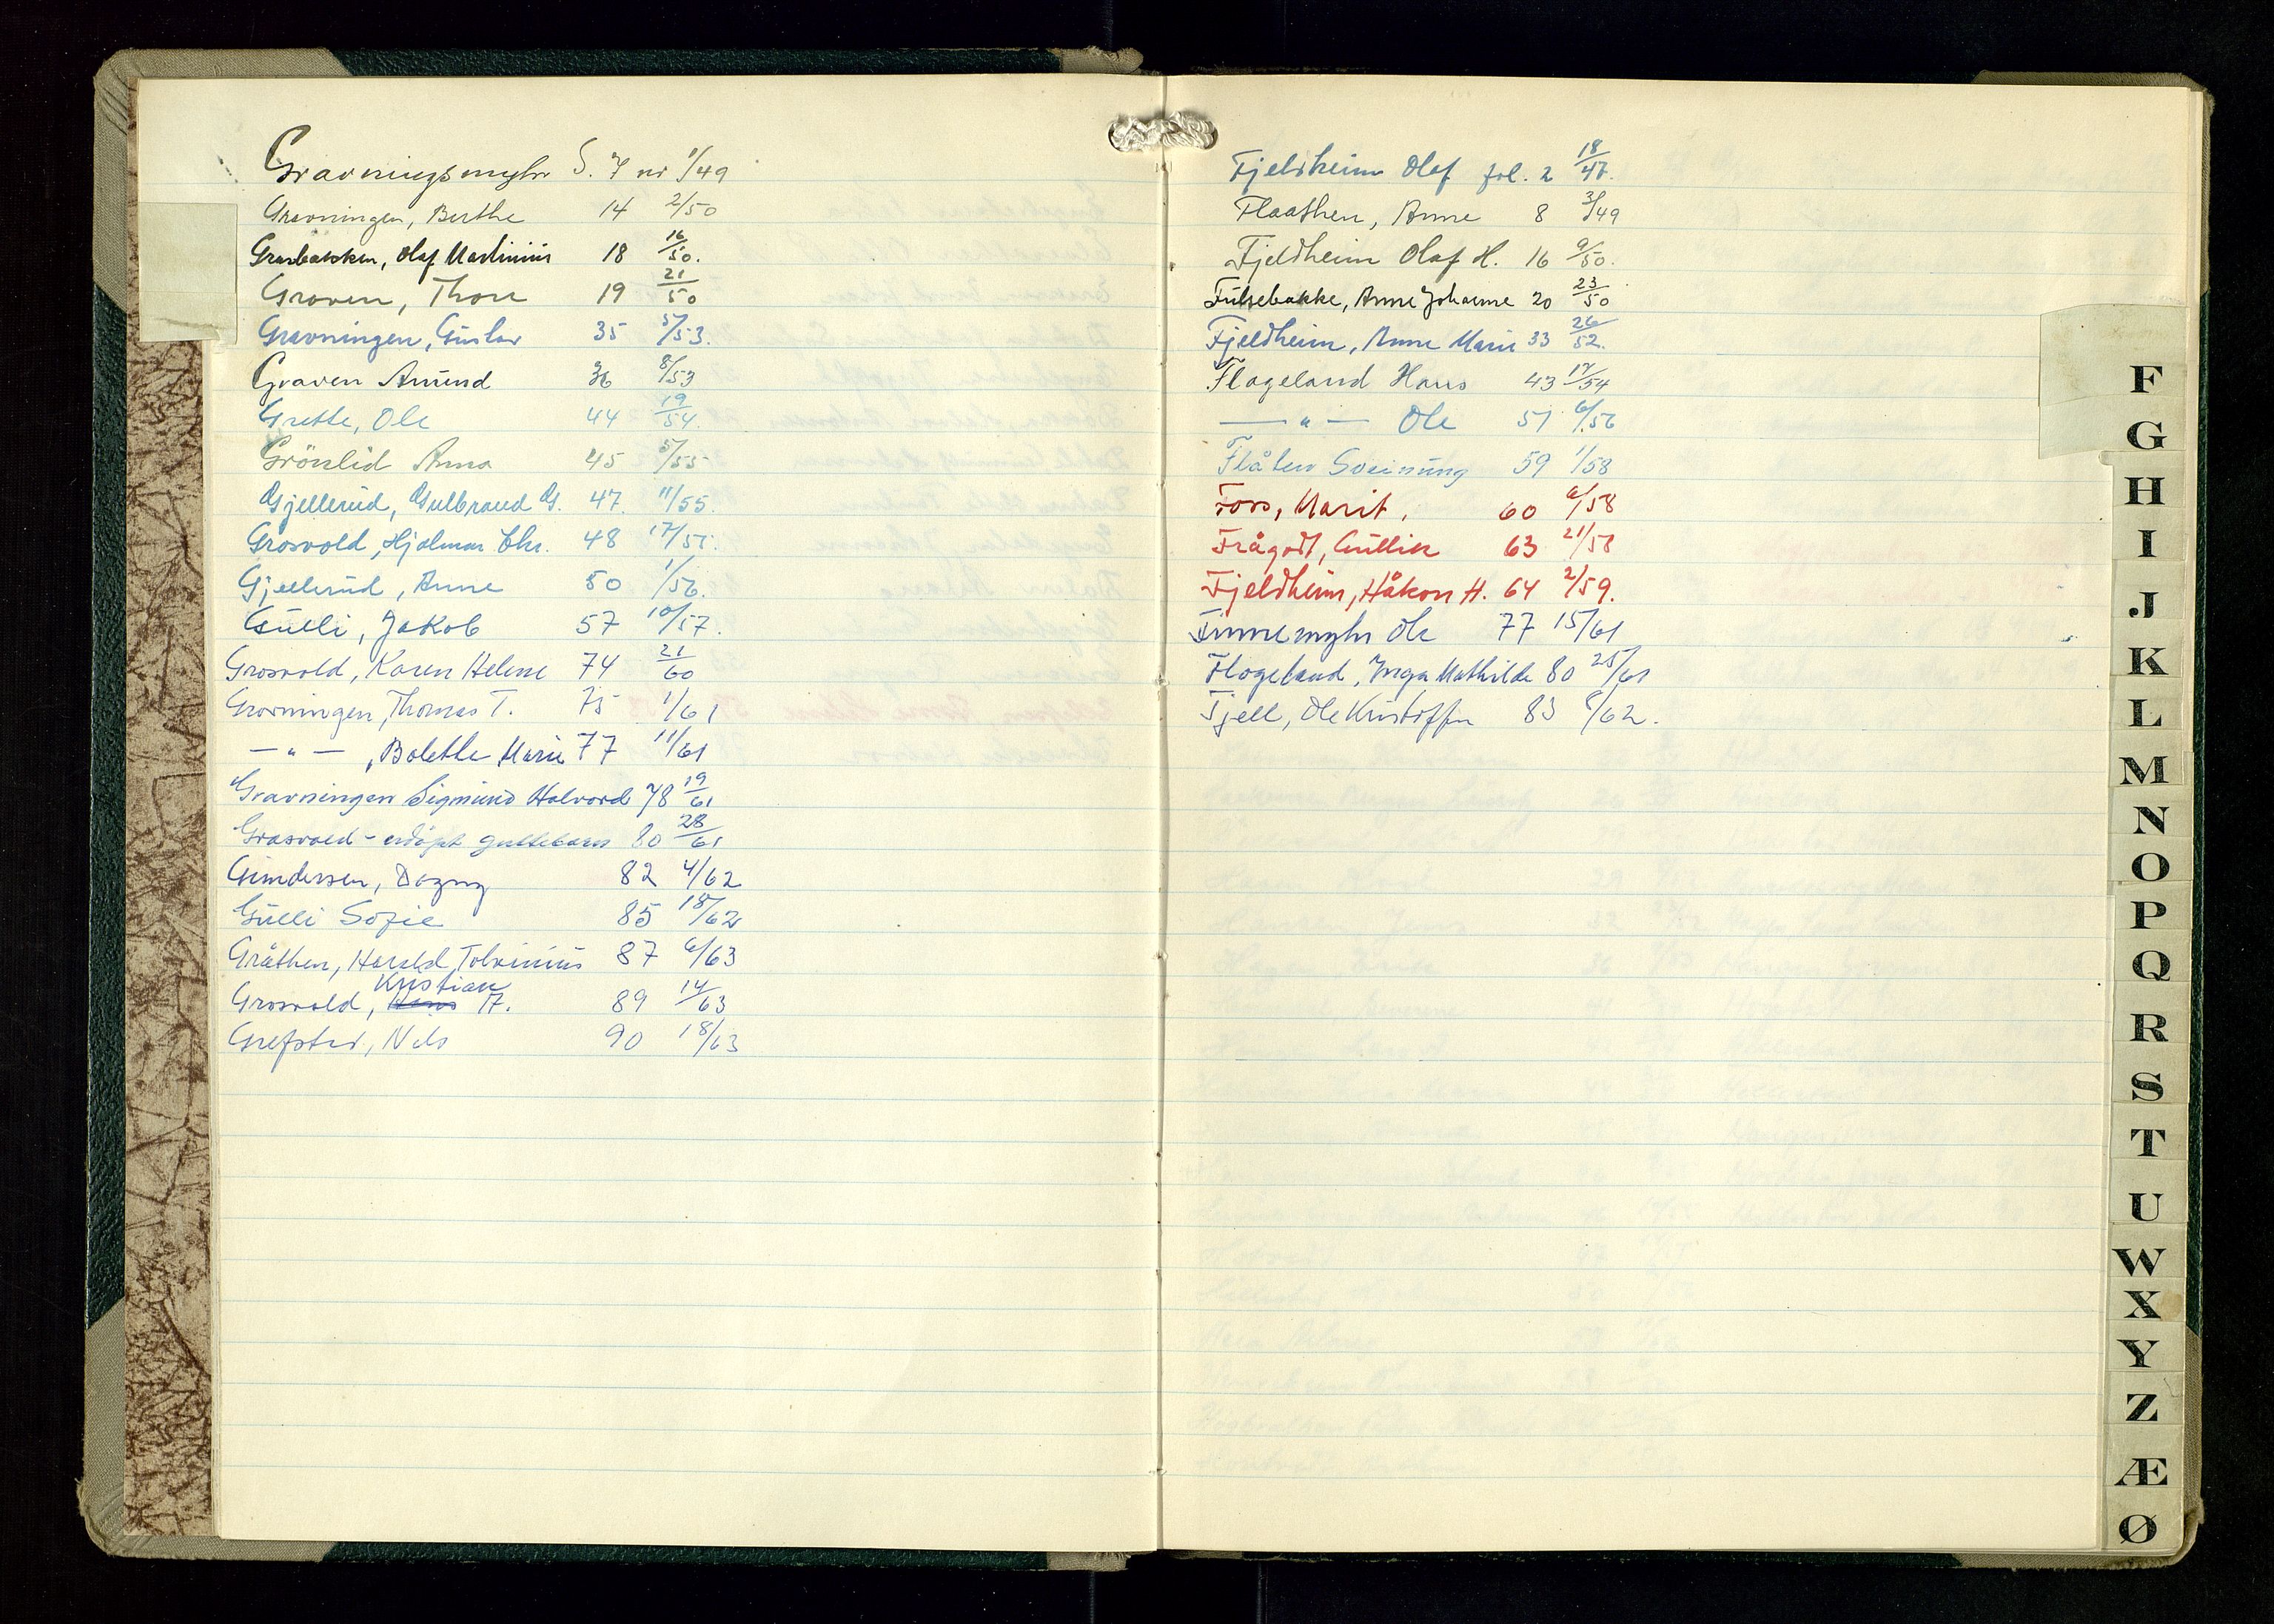 Gravningsmyhr S. 7 nr 1/49
Gravningen, Berthe 14 2/50
Grasbakken, Olaf Martinius 18 16/50.
Graven, Thore 19 21/50
Gravningen, Gustav 35 5/53.
Graven Amund 36 8/53
Grette, Ole 44 19/54.
Grönlid Anna 45 5/55
Gjellerud, Gulbrand G. 47. 11/55.
Grosvold, Hjalmar Chr. 48 17/55.
Gjellerud, Anne 50 1/56.
Gulli, Jakob 57 10/57.
Grosvold, Karen Helene 74 21/60
Gravningen, Thomas T. 75 1/61
— " — , Bolette Marie 77 11/61
Gravningen Sigmund Halvord 78 19/61
Grosvold - udøpt guttebarn 80 28/61
Gundersen, Dagny 82 4/62
Gulli Sofie 85 18/62
Gråthen, Harald Tolvinius 87 6/63
Kristian
Grosvold, Hans A. 89 14/63
Grefstad, Nels 90 18/63
Fjeldheim Olaf fol. 2 18/47.
Flaathen, Anne 8 3/49
Fjeldheim Olaf H. 16 9/50.
Fulsebakke, Anne Johanne 20 23/50
Fjeldheim, Anne Marie 33 26/52.
Flageland Hans 43 17/54
— " — Ole 51 6/56
Flåten Sveinung 59 1/58
Foss, Marit, 60 6/58
Frågodt, Gullik 63 21/58
Fjeldheim, Håkon H. 64 2/59.
Finnemyhr Ole 77 15/61
Flageland, Inga Mathilde 80 25/61
Fjell, Ole Kristoffer 83 8/62.
F
G
H
I
J
K
L
M
N
O
P
Q
R
S
T
U
W
X
Y
Z
Æ
Ø